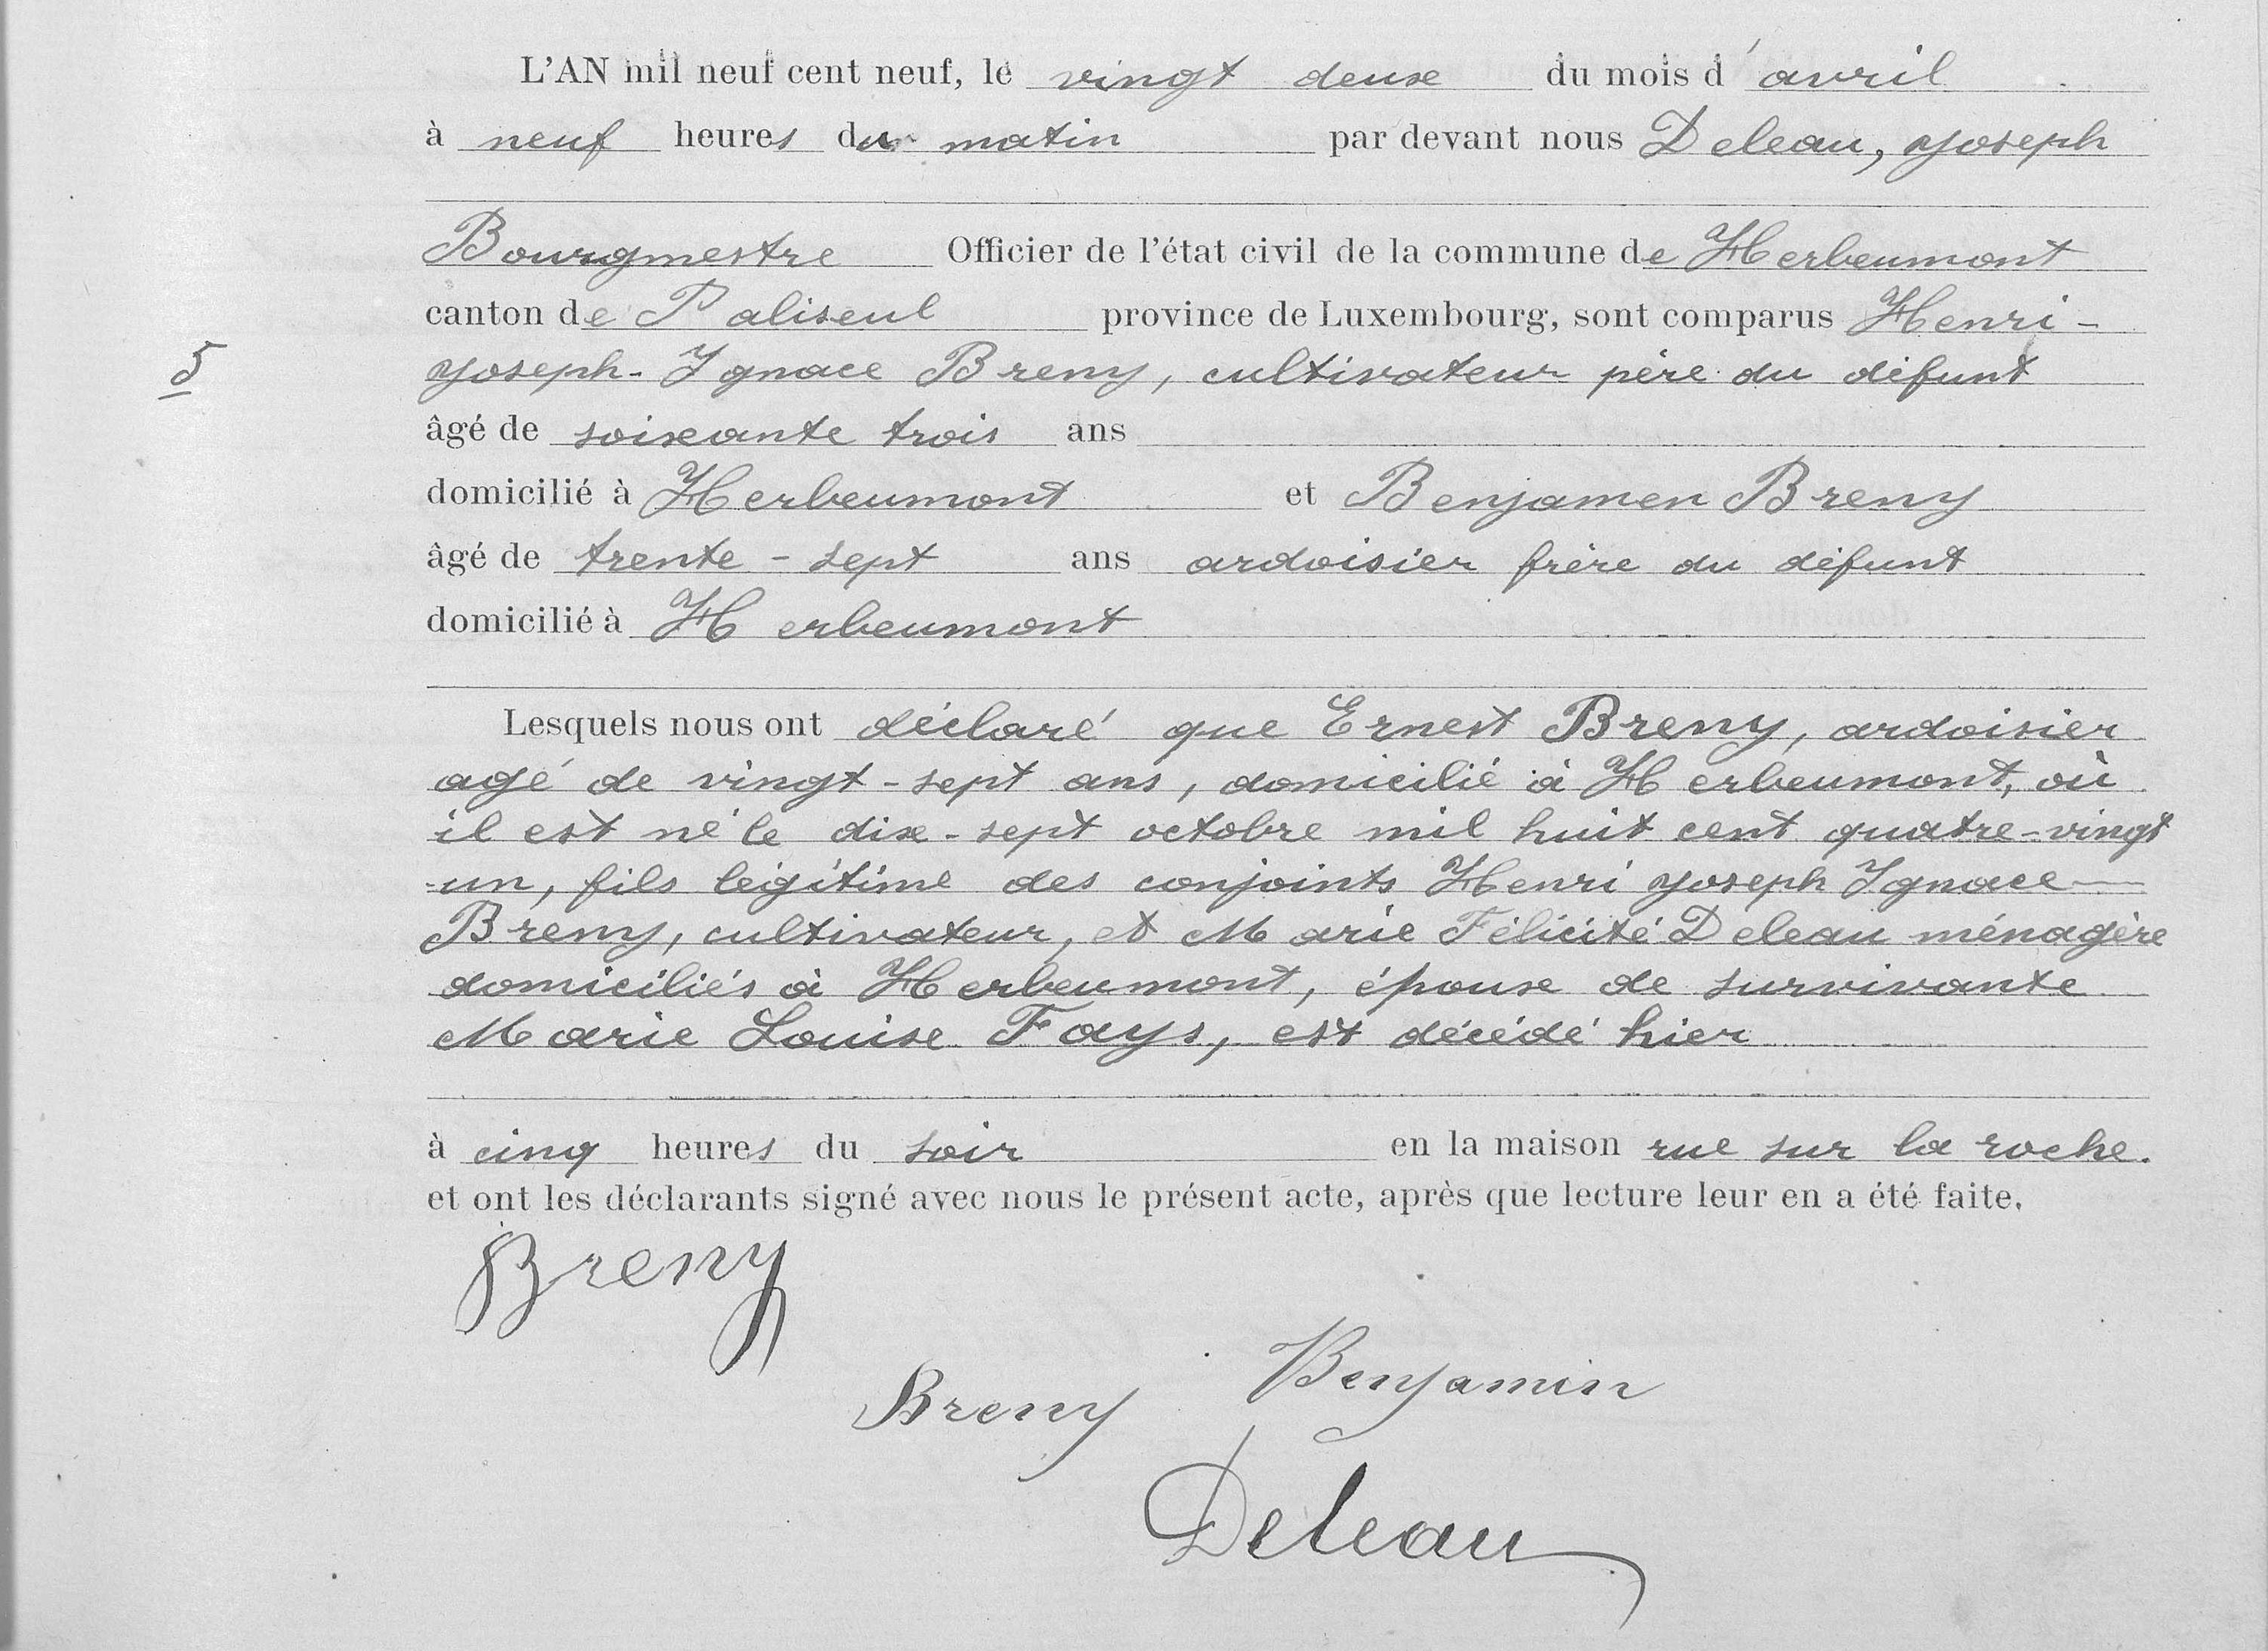 L'AN mil neuf cent neuf, le vingt deux du mois d'avril
à neuf heures du matin par devant nous Deleau, Joseph
Bourgmestre Officier de l'état civil de la commune de Herbeumont
canton de Paliseul province de Luxembourg, sont comparus Henri-
5
Joseph-Ignace Breny, cultivateur père du défunt
âgé de soixante trois ans
domicilié à Herbeumont et Benjamen Breny
âgé de trente-sept ans ardoisier frère du défunt
domicilié à Herbeumont
Lesquels nous ont déclaré que Ernest Breny, ardoisier
agé de vingt-sept ans, domicilié à Herbeumont, où
il est né le dix-sept octobre mil huit cent quatre-vingt
-un, fils légitime des conjoints Henri Joseph Ignace
Breny, cultivateur, et Marie Félicité Deleau ménagère
domiciliés à Herbeumont, épouse de survivante
Marie Louise Fays, est décédé hier
à cinq heures du soir en la maison rue sur la roche.
et ont les déclarants signé avec nous le présent acte, après que lecture leur en a été faite.
Breny
Breny Benjamin
Deleau